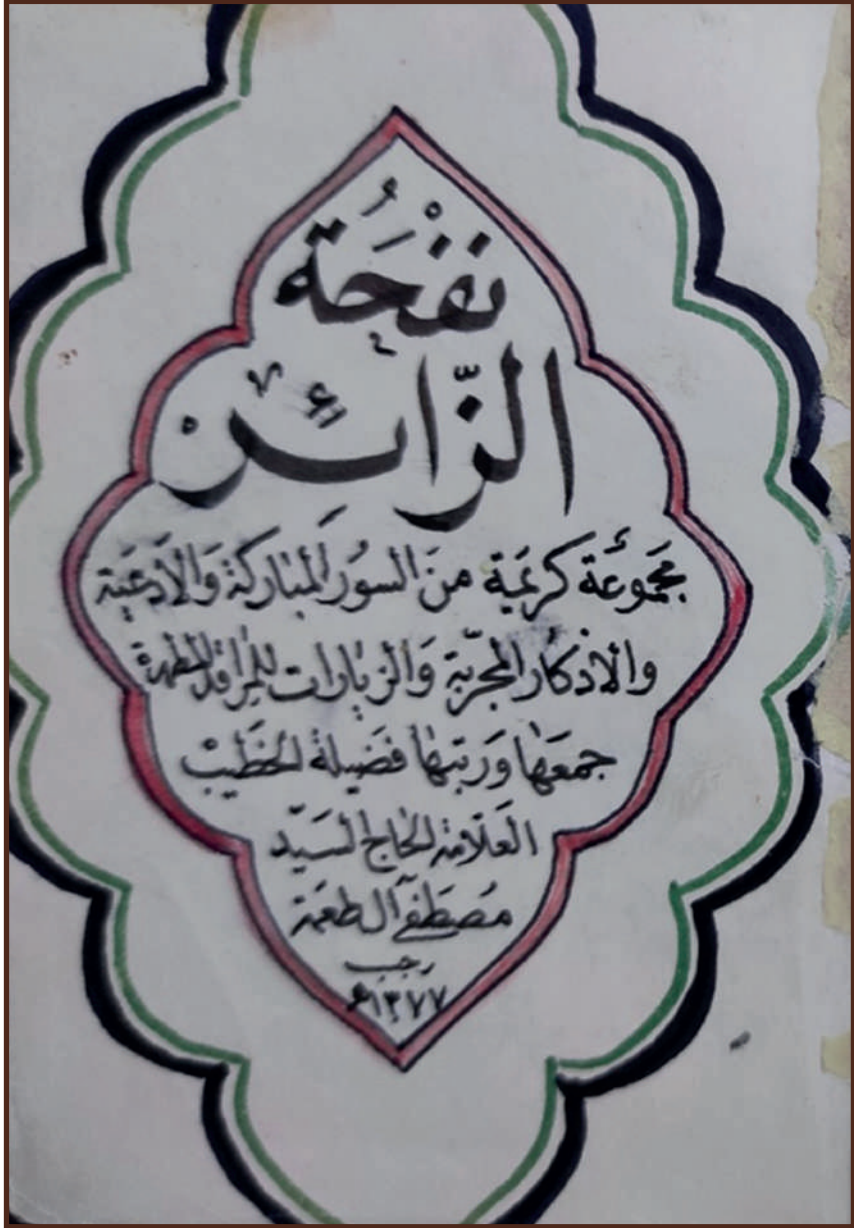 نَفْحَةُ
الزّائر
مَجموُعَة كَريمَية منَ السوُر المبَاركَة وَالأَدعيَة
والأذكار المجرّبَة وَالزيارات للمراقد المطهرة
جمعَها وَرَتبهَا فَضيلة الخطَيبْ
العَلّامة الحاج السَيّد
مُصْطَفى آل طعمَة
رجب
١٣٧٧ﻫ